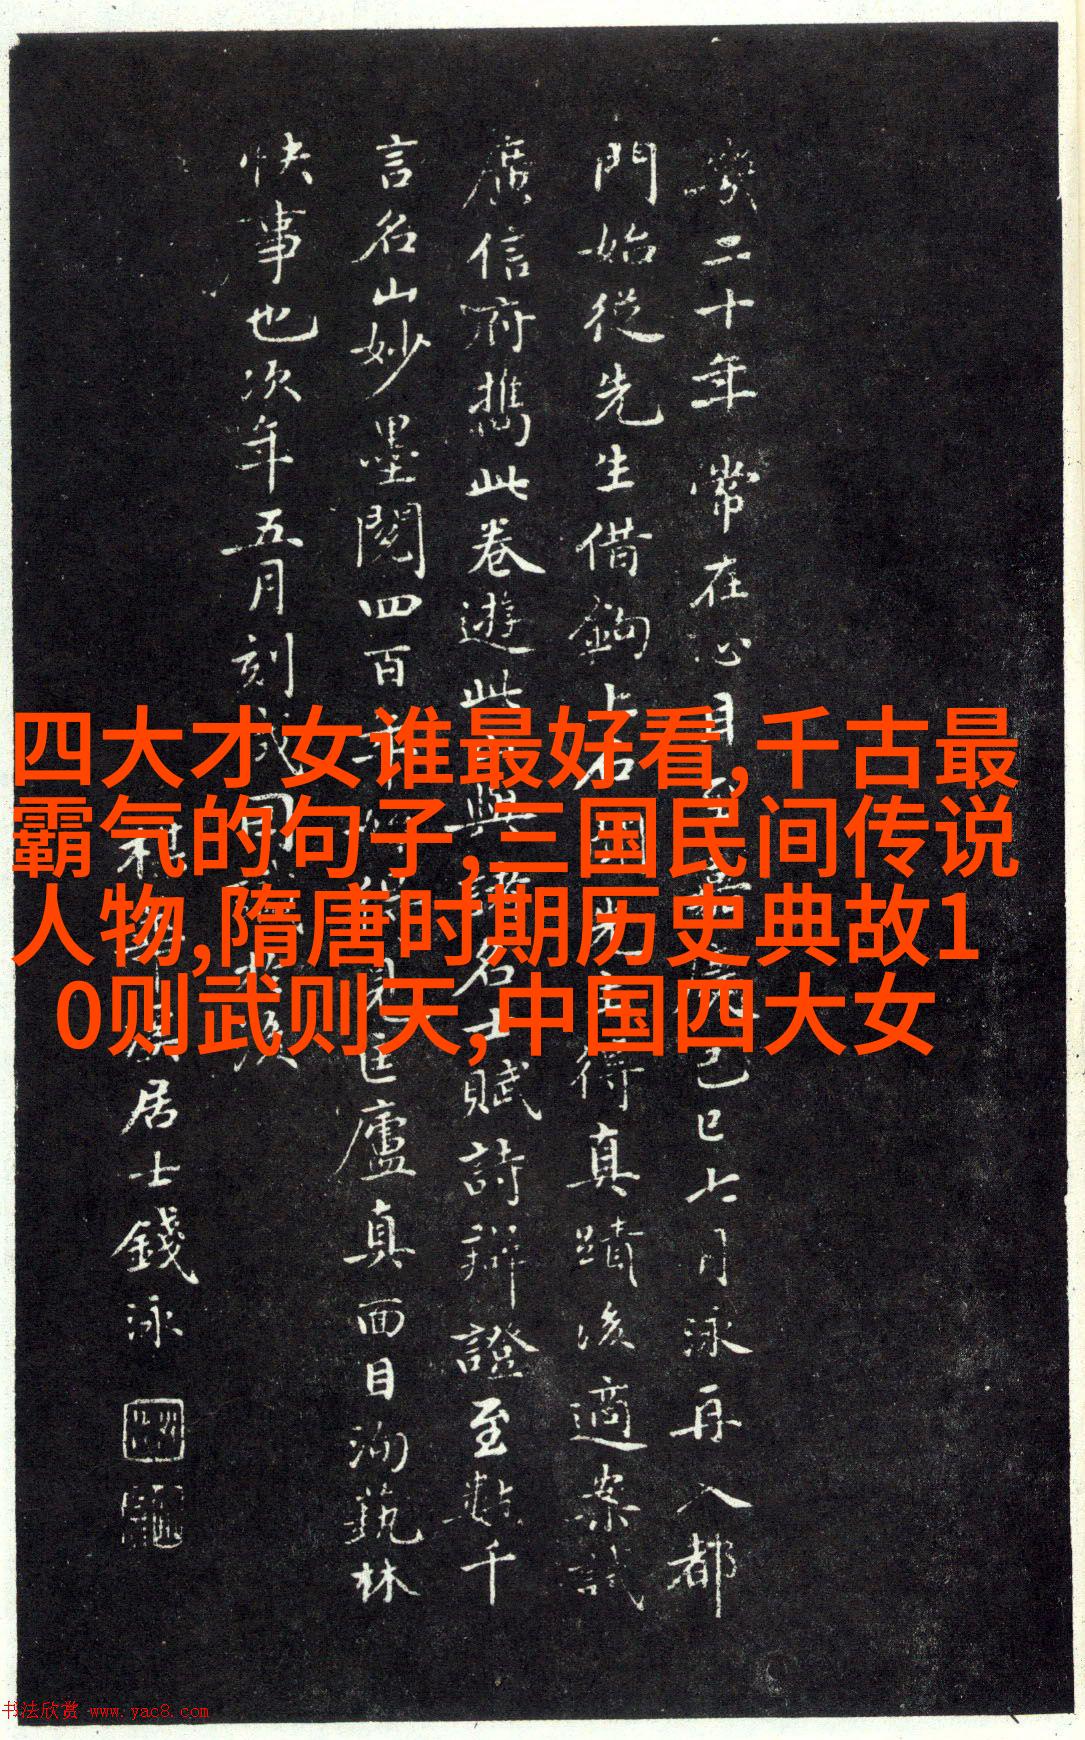 幾二十年常在心目
門始從先生借鉤上石
得真蹟後適案試
廣信府攜此卷遊此
與諸名士賦詩辯證至數千
言名山妙墨閱四百
匡廬真面目洵藝林
快事也次年五月刻成
居士錢泳
己巳七月泳再入都
四大才女谁最好看,千古最
霸气的句子,三国民间传说
人物,隋唐时期历史典故1
0则武则天,中国四大女
书法欣赏 www.yac8.com